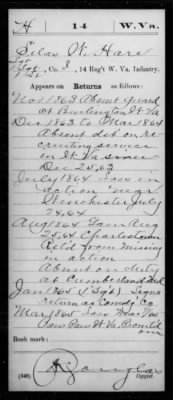 H | 14 | W. Va.
Silas W. Hare
Co. I, 14 Reg't W. Va. Infantry.
Appears on Returns as follows:
Nov. 1863 Absent guard
at Burlington W. Va
Dec 1863 to Mar 1864
Absent det on re-
cruiting service
in W. Va since
Dec 25, 63
July 1864 Loss in
action near
Winchester July
24, 64
Aug 1864 Gain Aug
25, 64 Charlestown
Ret'd from Missing
in action
Absent on duty
at Cumberland Md
Jan 1865 (1 Sgt) Signs
return as Comdg Co
Mar 1865 Loss Mar
W. Va. Promotion
Book mark:
(646)
Copyist.